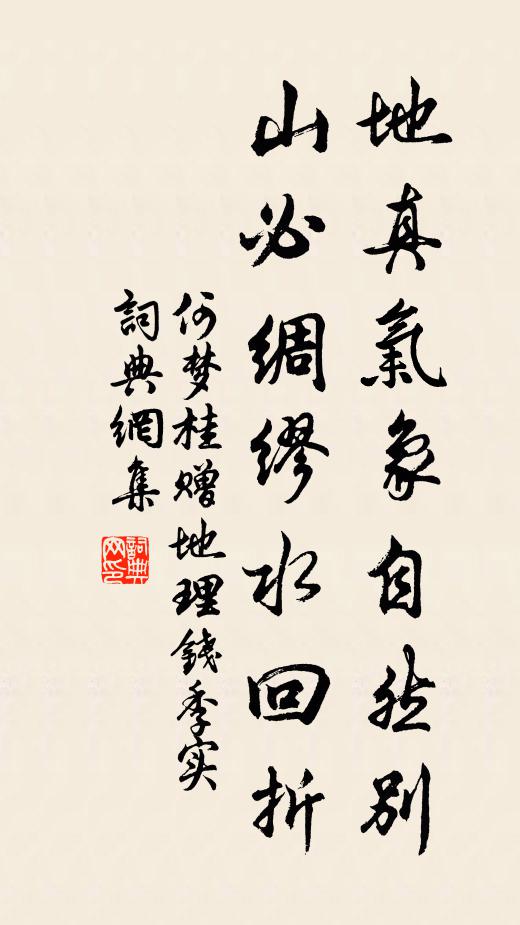 地真氣象自然別
山必綢繆水回折
何梦桂赠地理錢季实
詞典網集
詞典網印